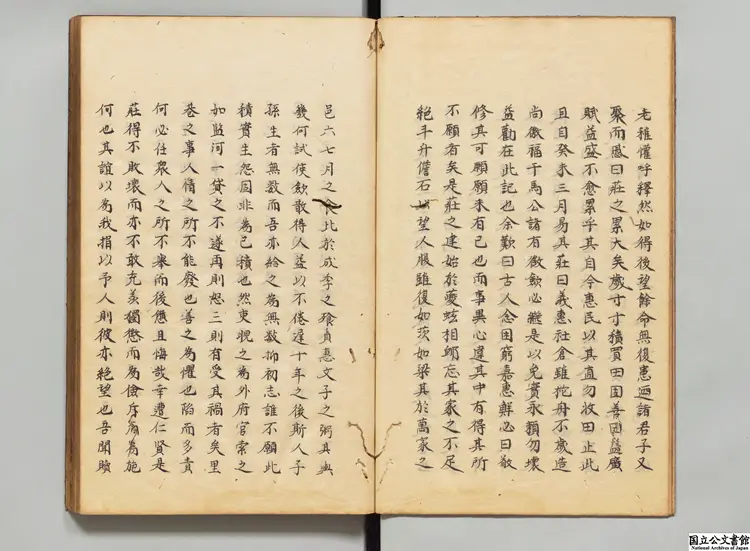 老稚懽呼釋然如得後望餘命無復憲迺諸君子又
聚而感曰莊之累大矣歲寸寸積買田固善因益廣
賦益盛不愈累乎其自今惠民以其直勿收田止此
且自癸未三月易其莊曰義惠社倉雖挖舟不歲造
尚徼福于馬公諸有徼歛必繼是以免實永賴勿壞
益勸在此記也余歎曰古人念困窮嘉惠鮮必曰敬
修其可願願未有已也而事異心違其中有得其所
不願者矣是莊之建始於夔蚿相卹忘其家之不足
絶斗升儋石望人服雖復如茨如梁其於萬家之
邑六七月之食此於成季之飱貞惠文子之粥其與
幾何試使歛散得人益以不倦遲十年之後斯人子
孫生者無數而吾亦給之為無數抑初志誰不願此
積實生怨固非為己積也然吏視之為外府官索之
如監河一貸之不遂再則怒三則有受其禍者矣里
巷之事人情之所不能發也善之為懼也陷而多責
何必任衆人之所不舉而後應且悔哉幸遭仁賢是
莊得不敢壞而亦不敢充羨獨懲而為儉序為施
何也其誼以為我捐以予人則彼亦絶望也吾聞賾
国立公文書館
National Archives of Japan